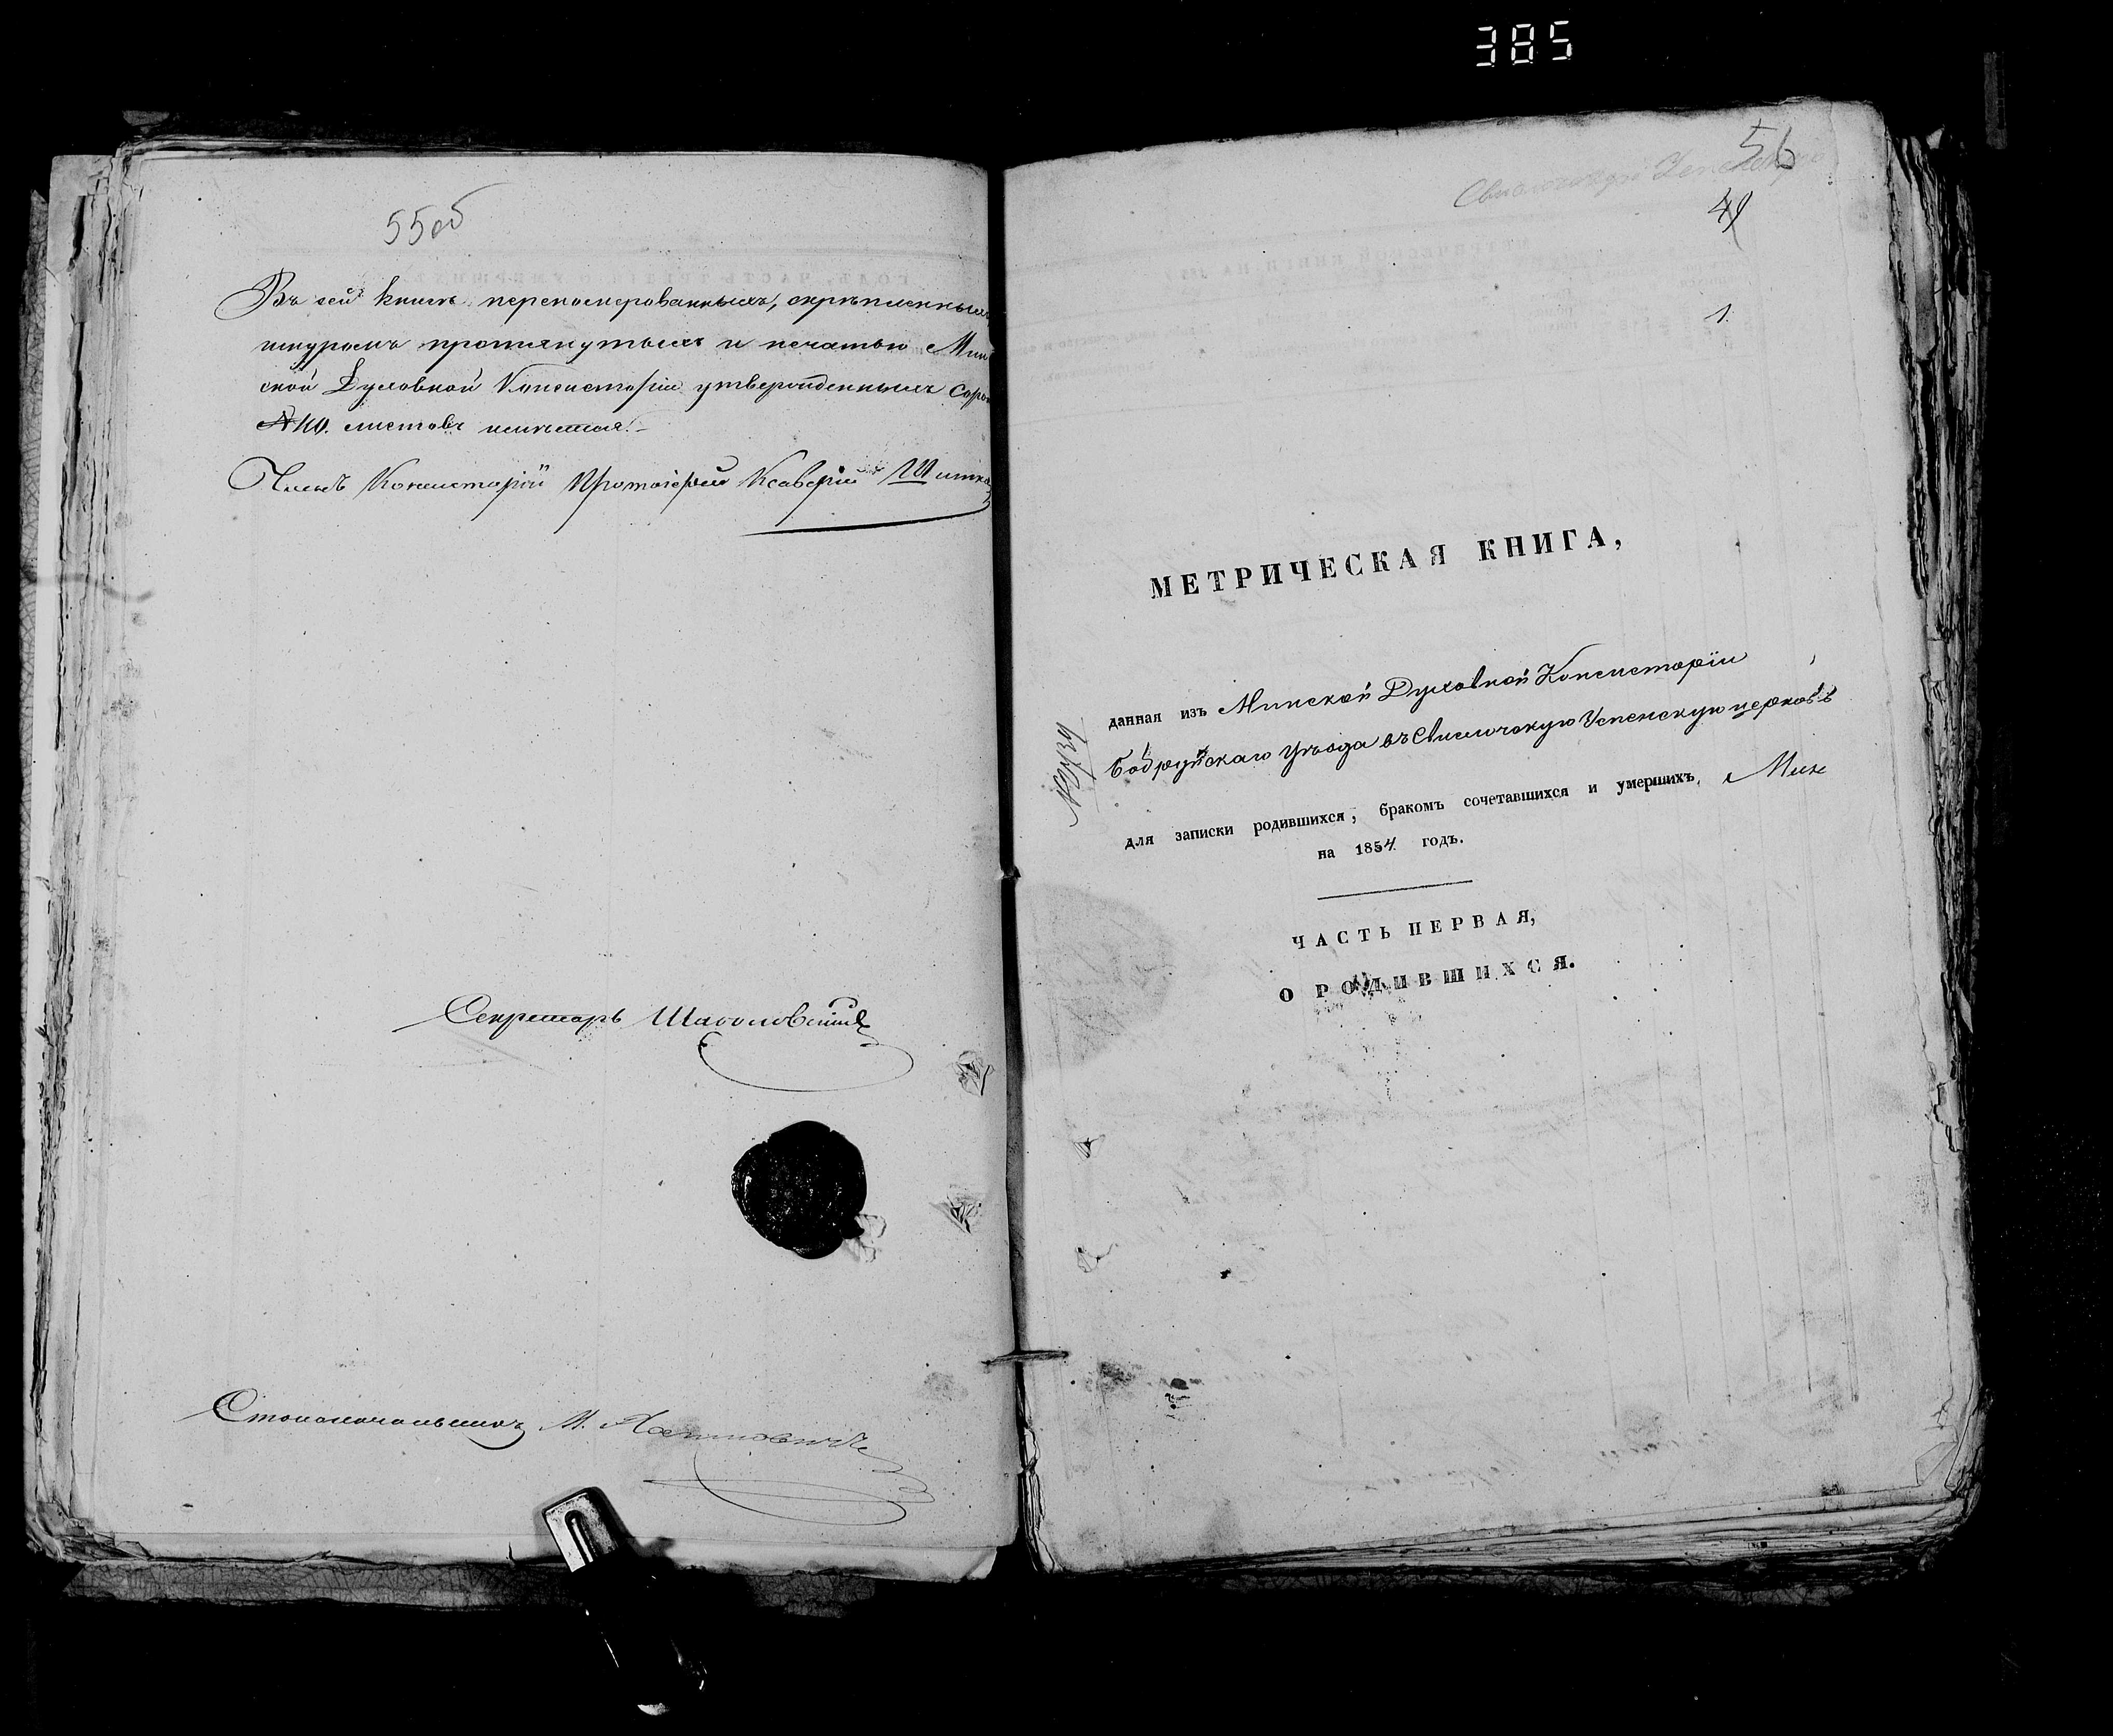 385
55об
Въ сей книгѣ перенумерованныхъ, скрѣпленныхъ
шнуромъ протянутыхъ и печатью Мин
ской Духовной Консисторіи утвержденныхъ соро
40. листовъ имѣется.
Членъ Консисторіи Протоіерей Ксаверій
Секретарь
Столоначальникъ М.
56
49
1.
МЕТРИЧЕСКАЯ КНИГА,
данная изъ Минской Духовной Консисторіи
Бобруйскаго Уѣзда въ Свислочскую Успенскую церковь
для записки родившихся, бракомъ сочетавшихся и умершихъ,
на 1854 годъ.
ЧАСТЬ ПЕРВАЯ,
О РОДИВШИХСЯ.